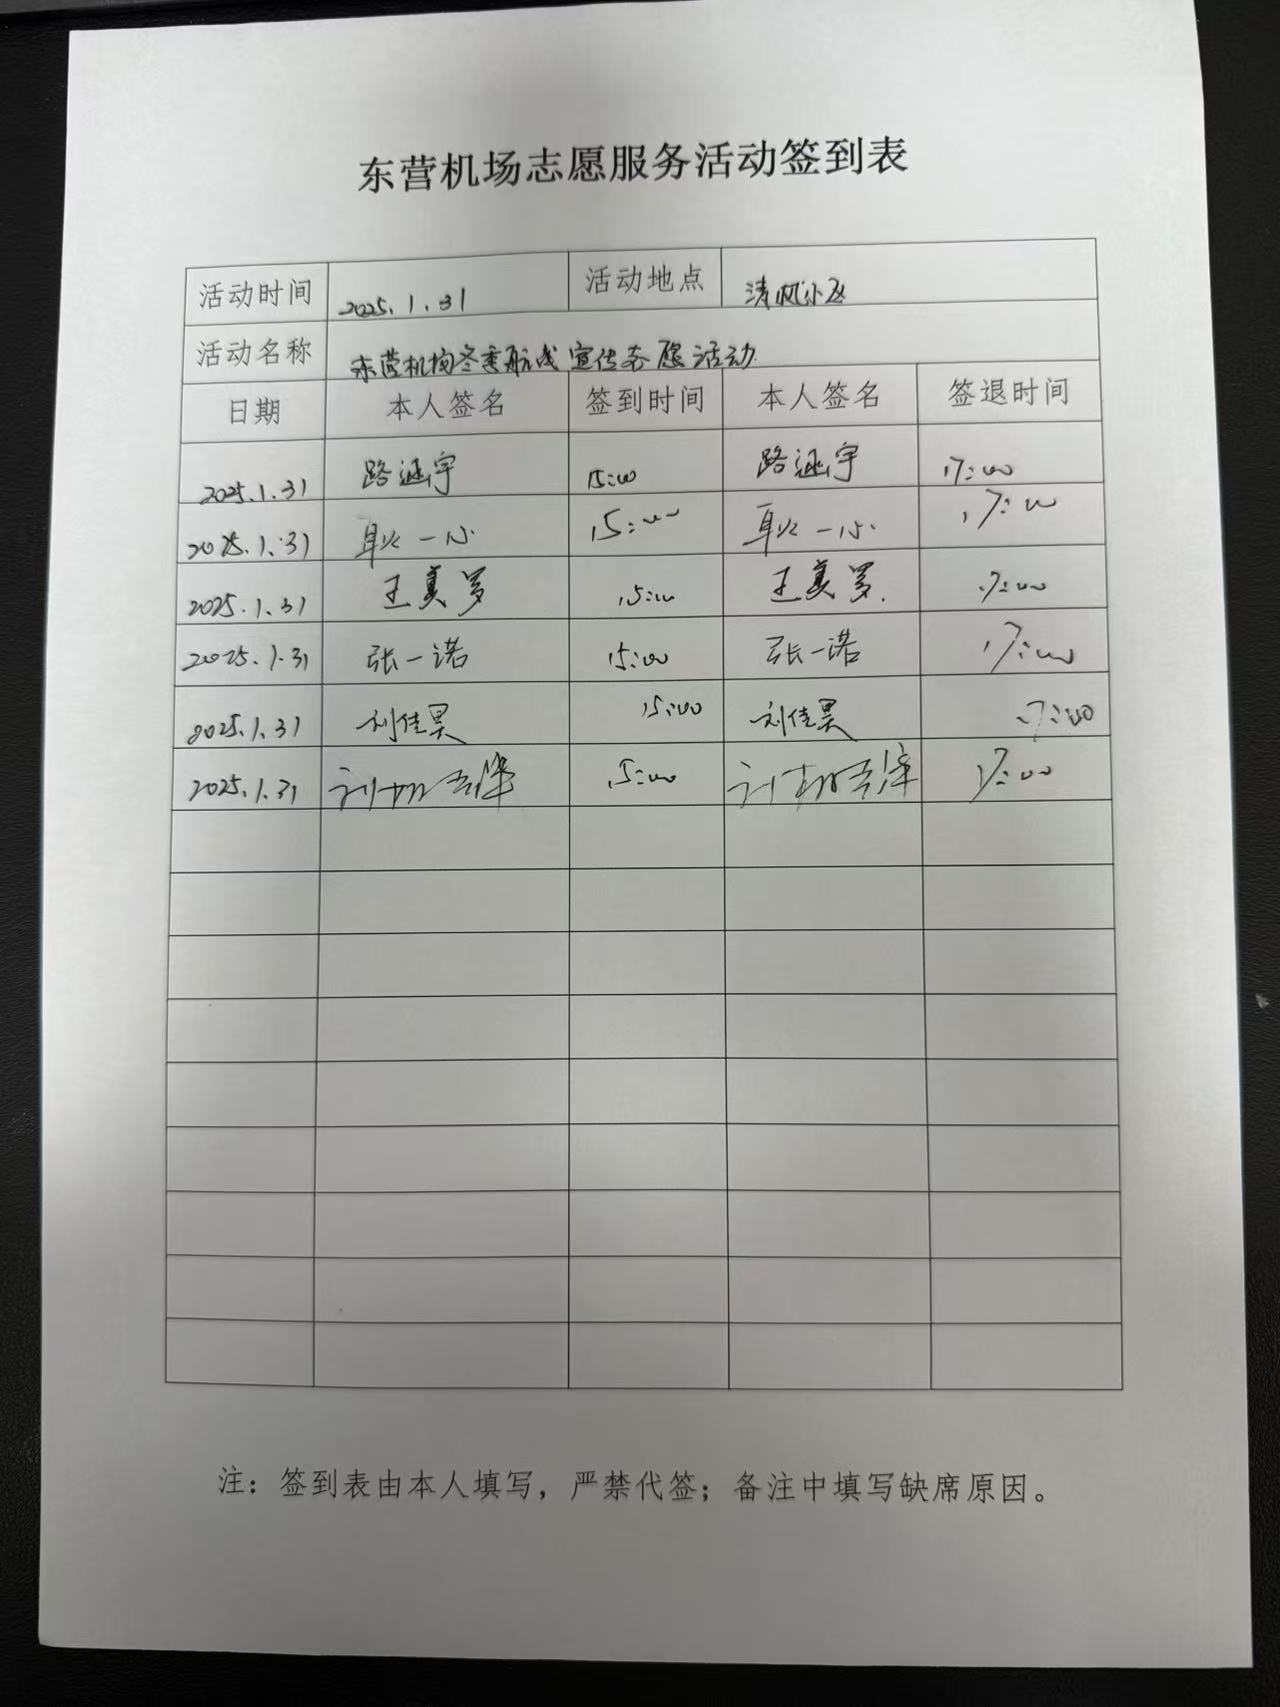 东营机场志愿服务活动签到表
活动时间 2025.1.31 活动地点 清风小区
活动名称 东营机场冬季航线宣传志愿活动
日期 本人签名 签到时间 本人签名 签退时间
2025.1.31 路涵宇 15:00 路涵宇 17:00
2025.1.31 耿一小 15:00 耿一小 17:00
2025.1.31 王真罗 15:00 王真罗 17:00
2025.1.31 张一诺 15:00 张一诺 17:00
2025.1.31 刘佳昊 15:00 刘佳昊 17:00
2025.1.31 15:00 17:00
注：签到表由本人填写，严禁代签；备注中填写缺席原因。